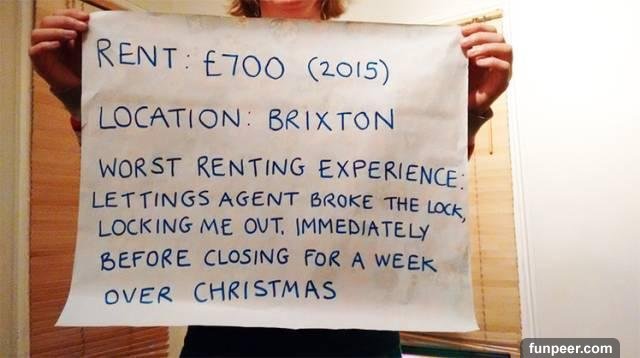 RENT: £700 (2015)
LOCATION: BRIXTON
WORST RENTING EXPERIENCE:
LETTINGS AGENT BROKE THE LOCK,
LOCKING ME OUT, IMMEDIATELY
BEFORE CLOSING FOR A WEEK
OVER CHRISTMAS
funpeer.com